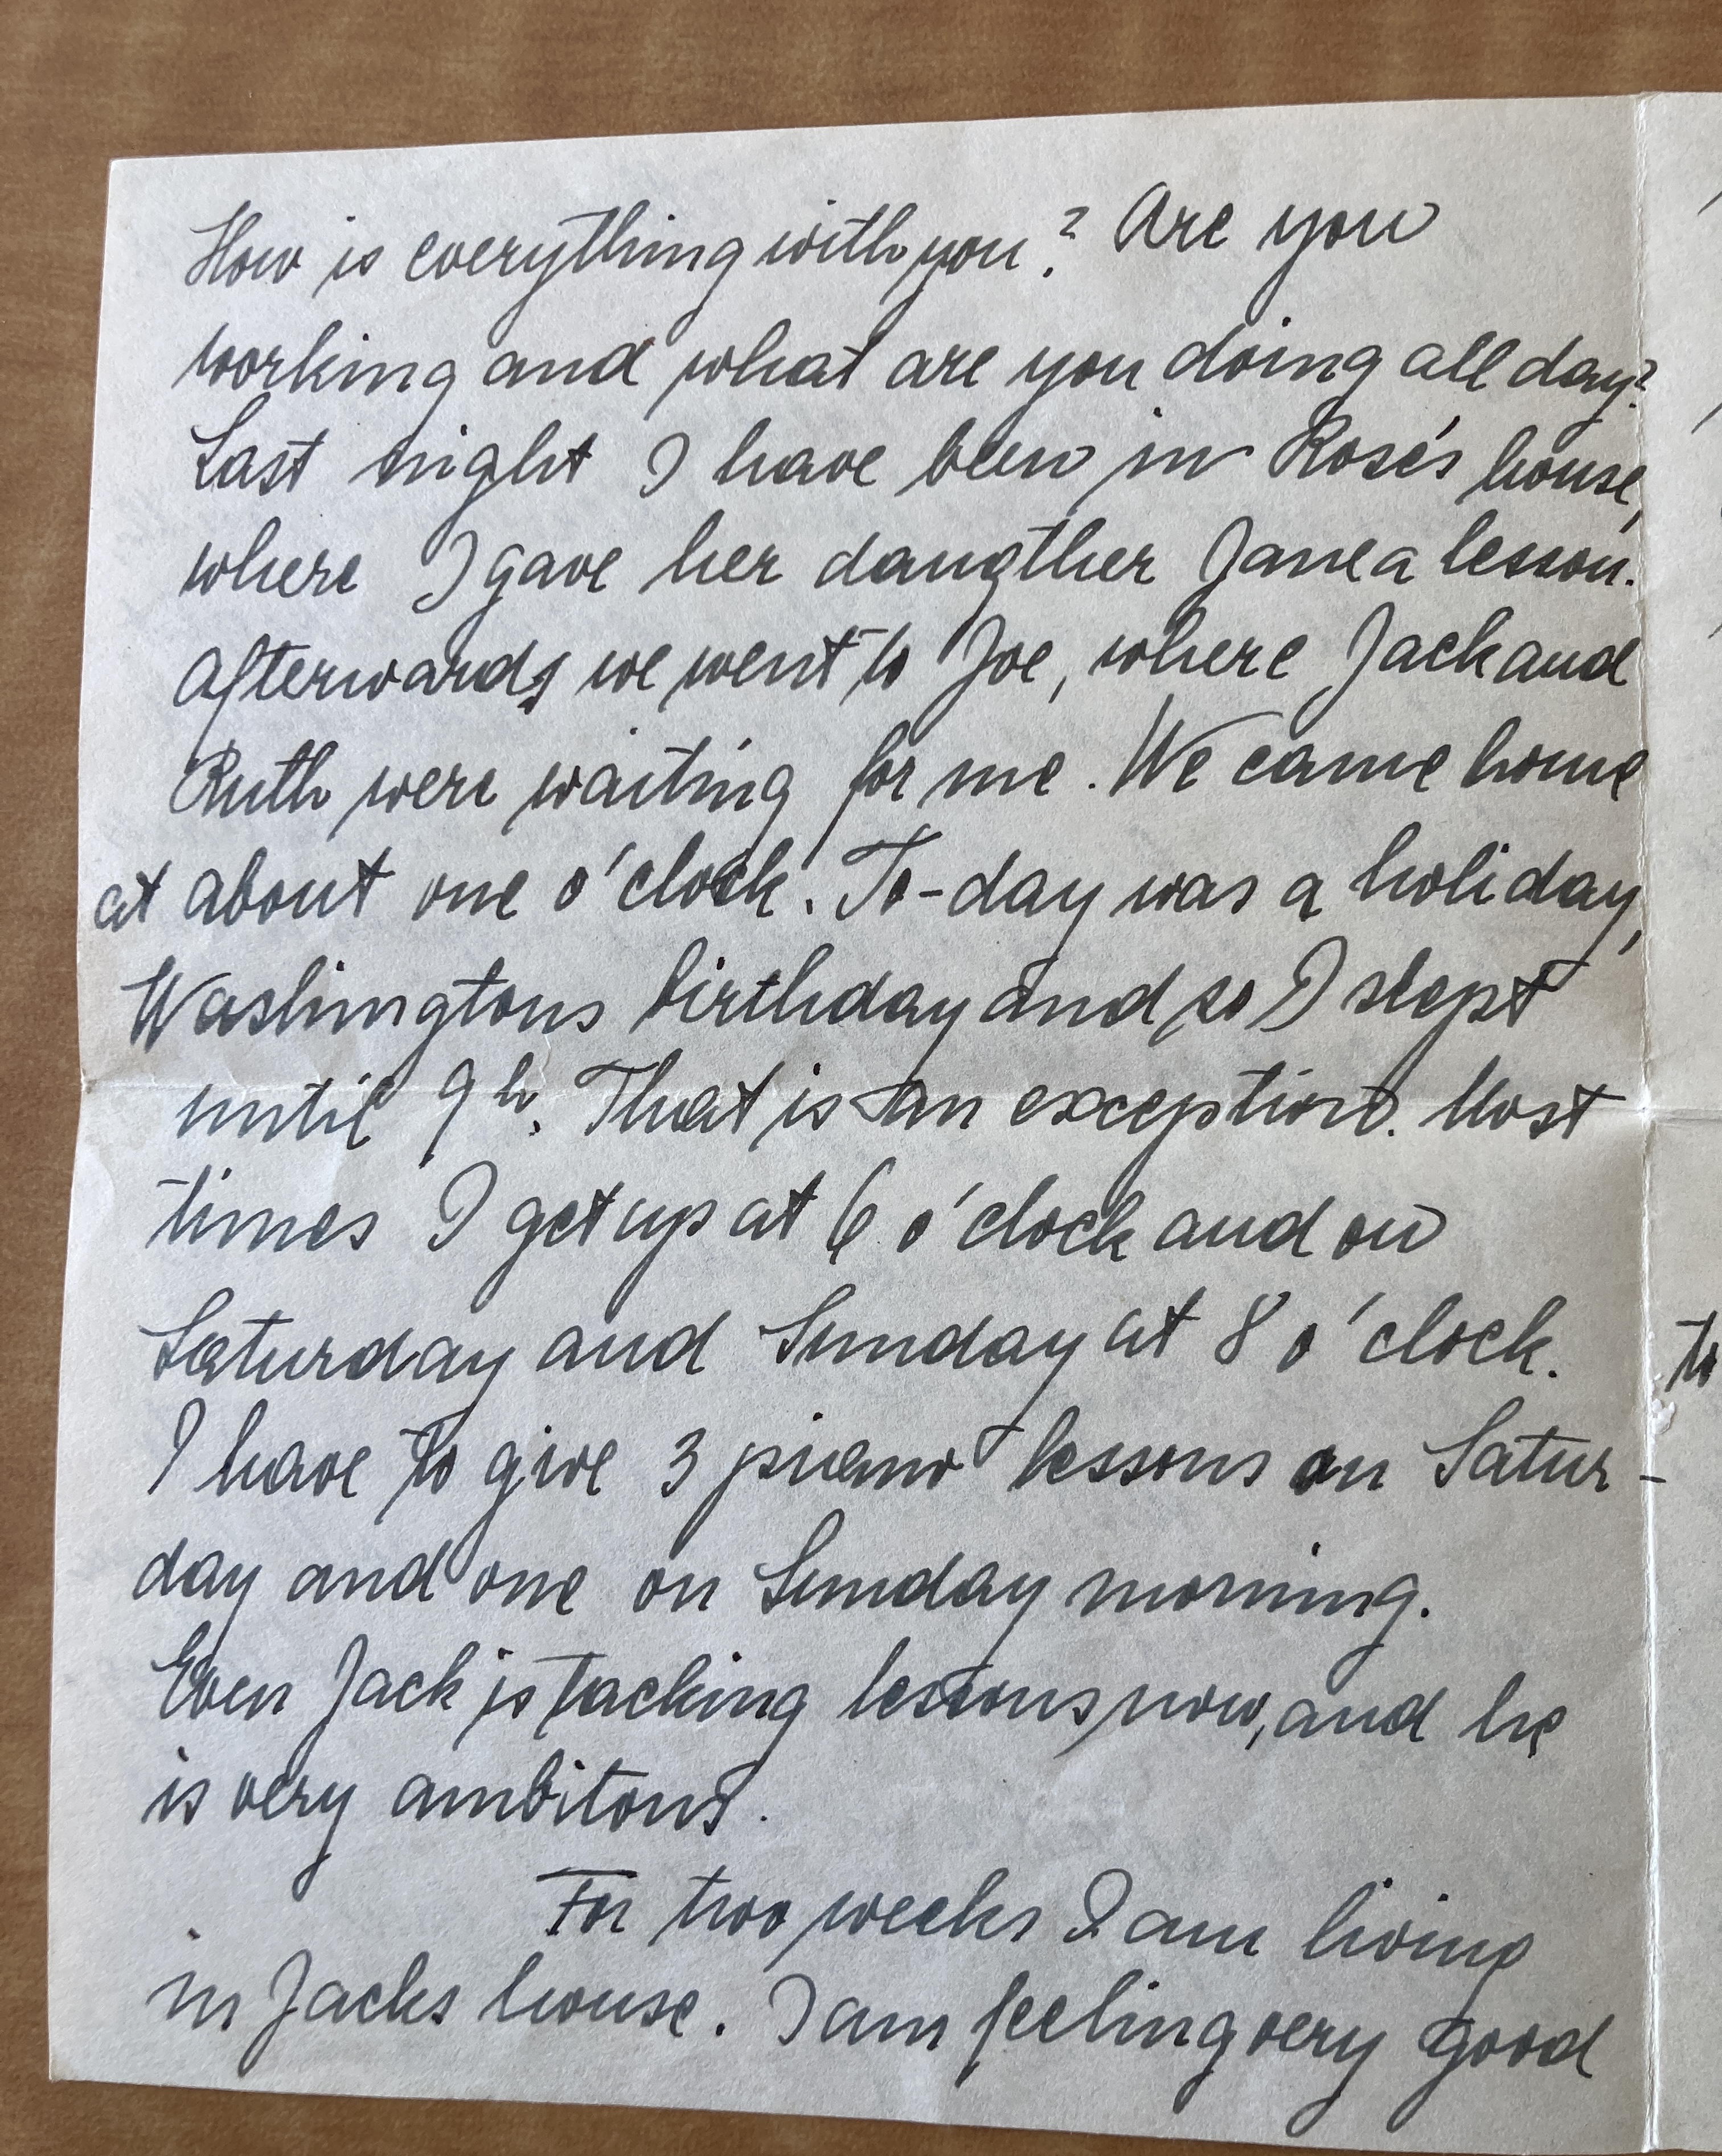 How is everything with you? Are you
working and what are you doing all day?
Last night I have been in Rose's house,
where I gave her daugther Jane a lesson.
Afterwards we went to Joe, where Jack and
Ruth were waiting for me. We came home
at about one o'clock. To-day was a holiday,
Washingtons birthday and so I slept
until 9h. That is an exception. Most
times I get up at 6 o'clock and on
Saturday and Sunday at 8 o'clock.
I have to give 3 piano lessons on Satur-
day and one on Sunday morning.
Even Jack is tacking lessons now, and he
is very ambitous.
For two weeks I am living
in Jacks house. I am feeling very good
to